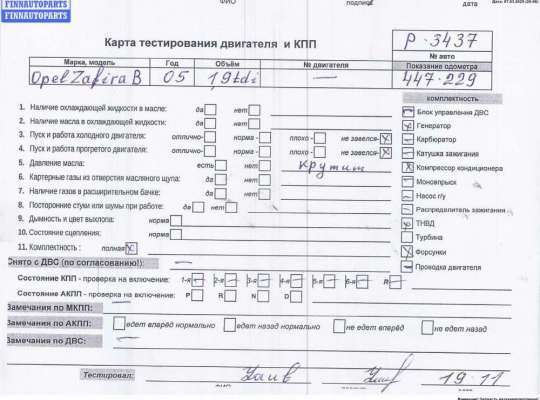 FINNAUTOPARTS
FINNAUTOPARTS
ФИО подпись дата
Карта тестирования двигателя и КПП
p-3437
№ авто
Марка, модель Год Объём № двигателя Показание одометра
Opel Zafira B 05 1,9tdi — 447-229
комплектность
1. Наличие охлаждающей жидкости в масле: да нет
2. Наличие масла в охлаждающей жидкости: да нет
3. Пуск и работа холодного двигателя: отлично- норма - плохо - не завелся-
4. Пуск и работа прогретого двигателя: отлично- норма - плохо - не завелся-
5. Давление масла: есть нет крутит
6. Картерные газы из отверстия масляного щупа: да нет
7. Наличие газов в расширительном бачке: да нет
8. Посторонние стуки или шумы при работе: да нет
9. Дымность и цвет выхлопа: норма
10. Состояние сцепления: норма
11. Комплектность : полная
Блок управления ДВС
Генератор
Карбюратор
Катушка зажигания
Компрессор кондиционера
Моновпрыск
Насос г/у
Распределитель зажигания
ТНВД
Турбина
Форсунки
Проводка двигателя
Снято с ДВС (по согласованию!): —
Состояние КПП - проверка на включение: 1-я 2-я 3-я 4-я 5-я 6-я R
Состояние АКПП - проверка на включение: P R N D
Замечания по МКПП:
Замечания по АКПП: едет вперёд нормально едет назад нормально не едет вперёд не едет назад
Замечания по ДВС: —
Тестировал: 19-11